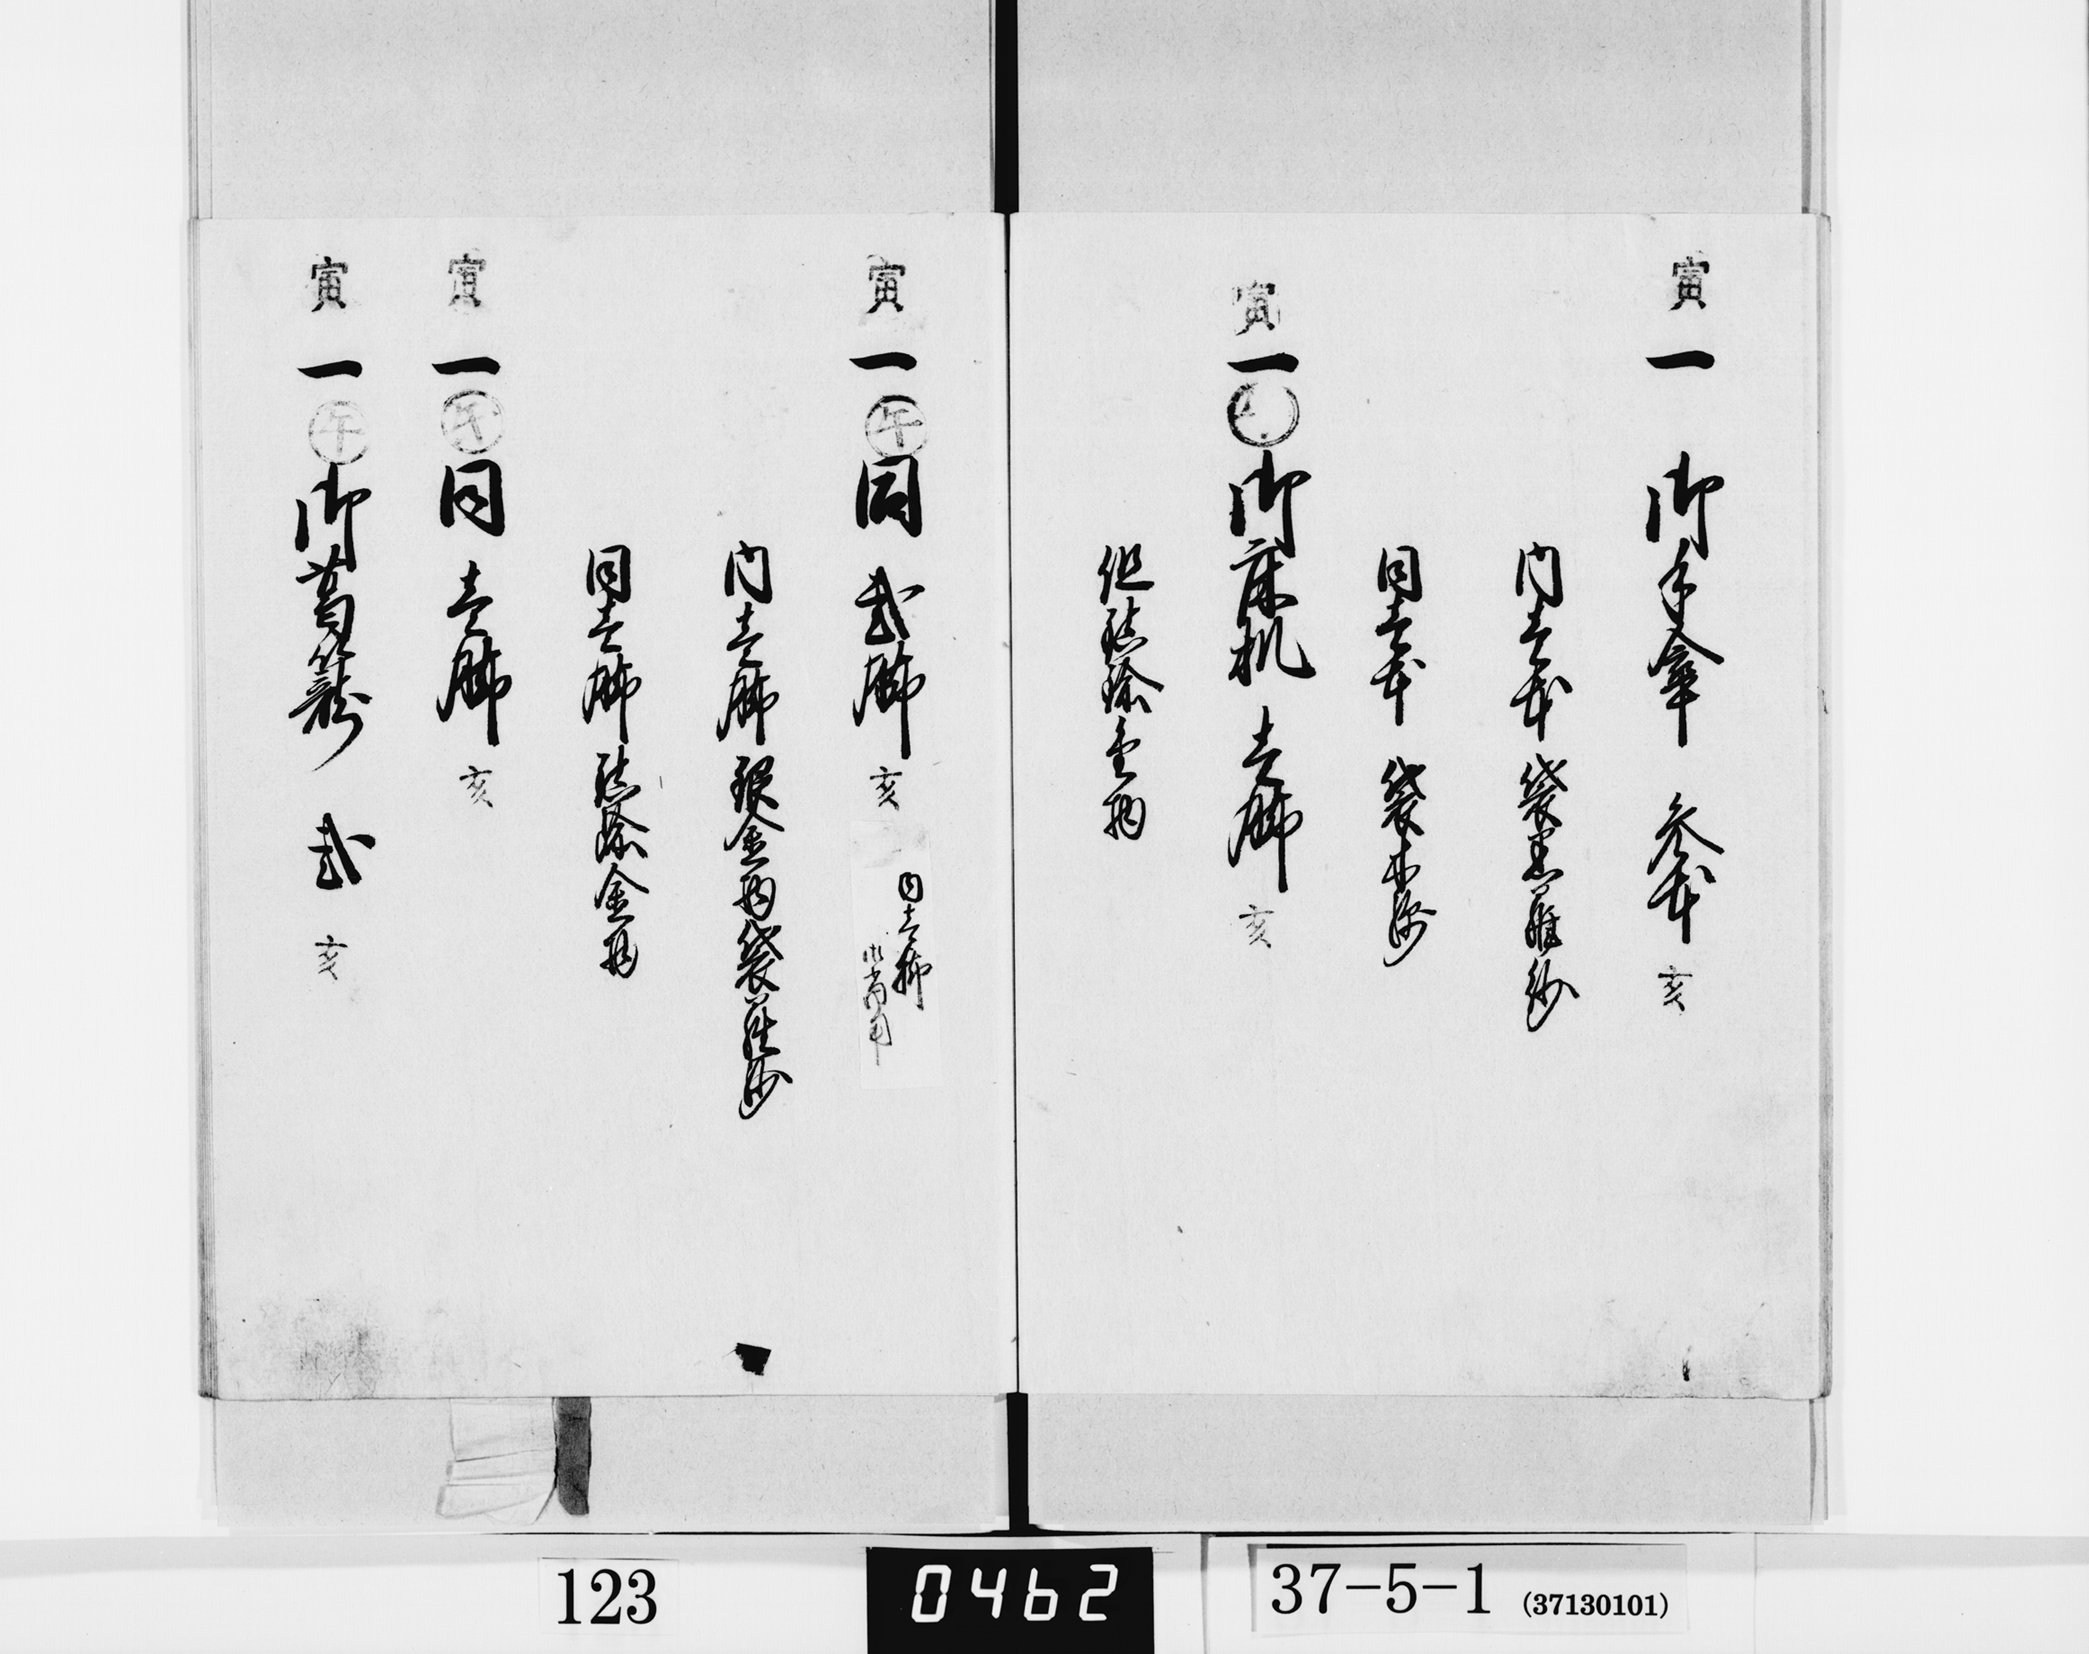 寅 一 御手傘 参本 亥
内壱本 袋黒羅紗
同壱本 袋木綿
寅 一 御床机 壱脚 亥
但惣滅金物
寅 一 午 同 弐脚 亥
同壱脚
御常用
内壱脚 銀金物袋羅紗
同壱脚 金物
寅 一 午 同 壱脚 亥
寅 一 午 御葛籠 弐 亥
123
0462
37-5-1 (37130101)